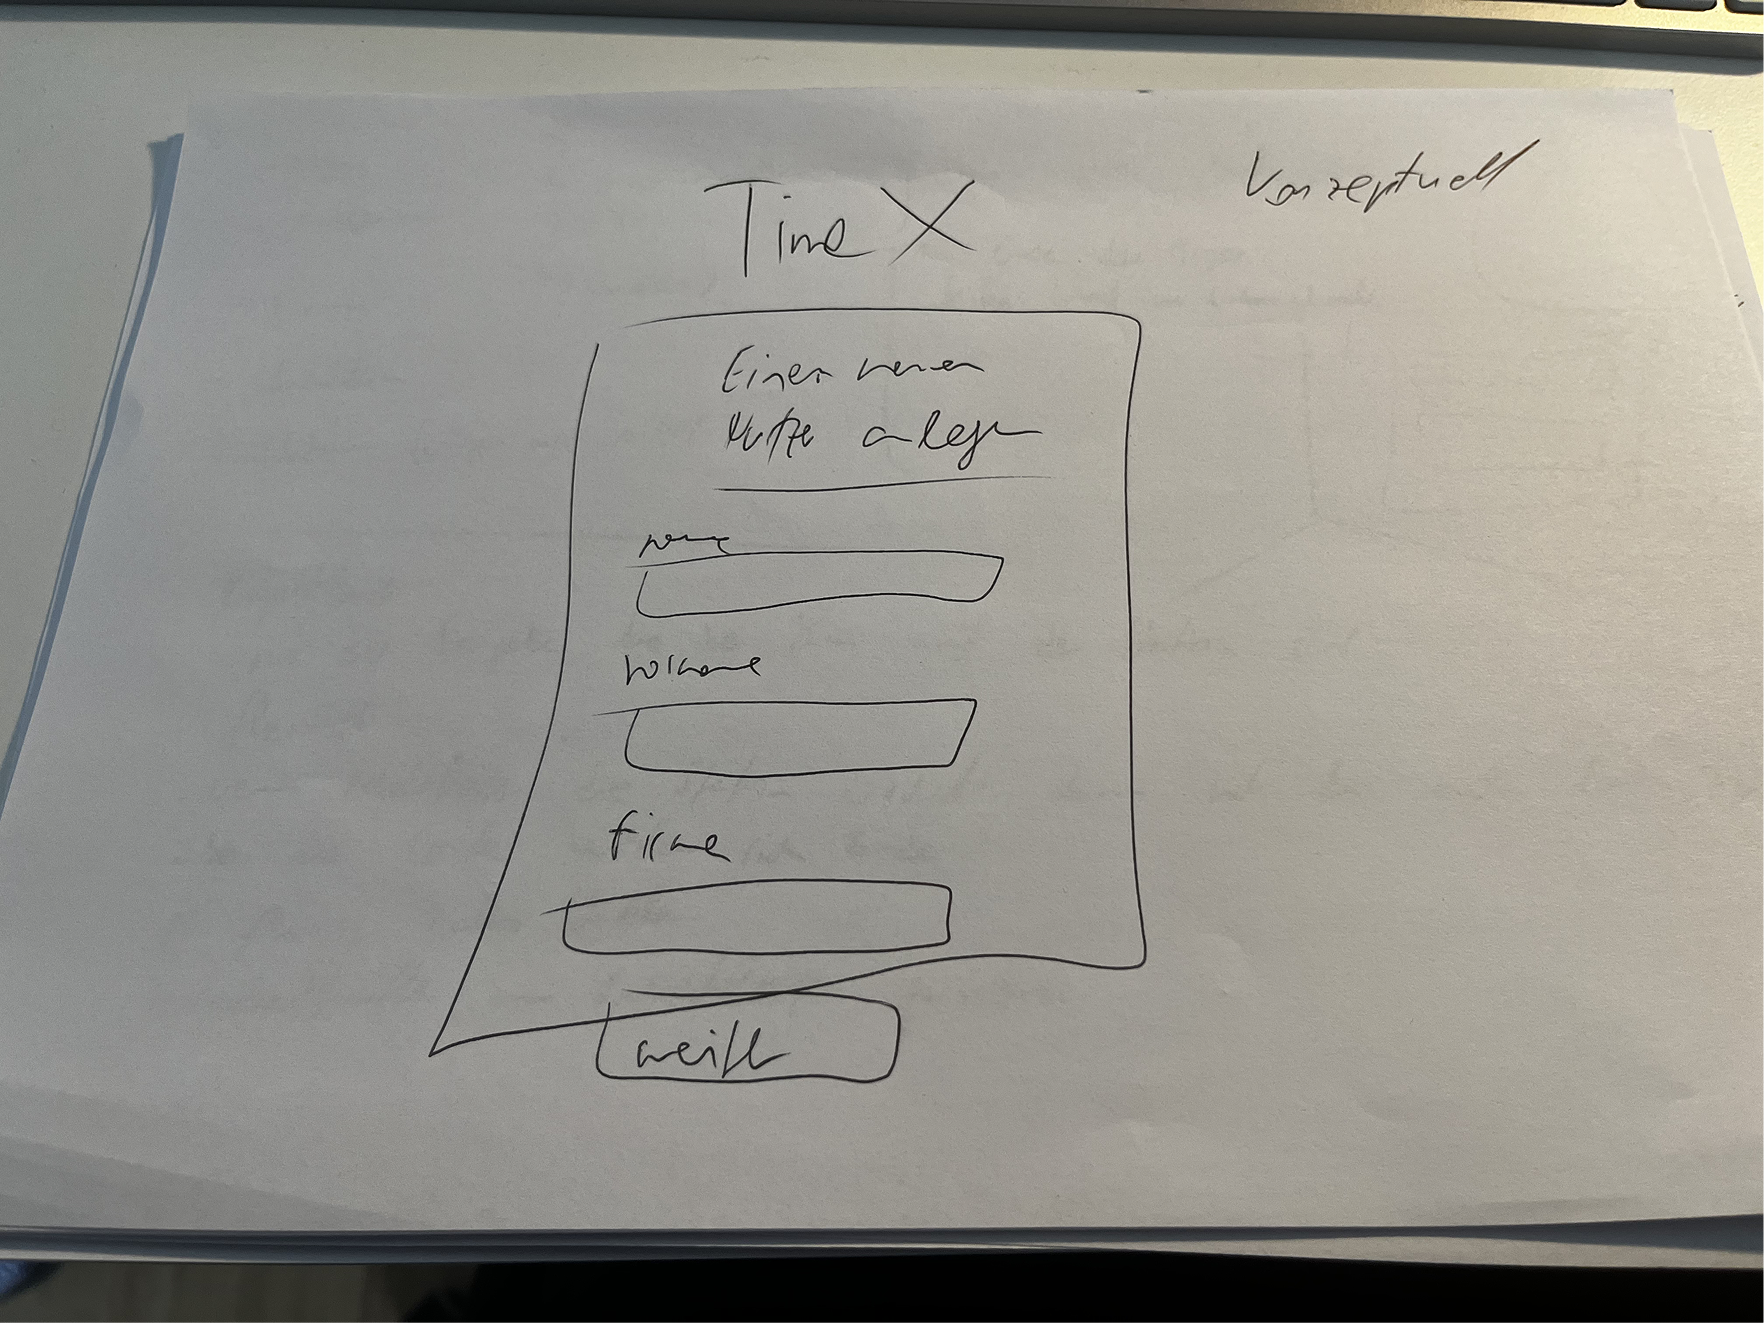 Konzeptuell
Time X
Einen neuen
Nutzer anlegen
name
vorname
firma
weiter